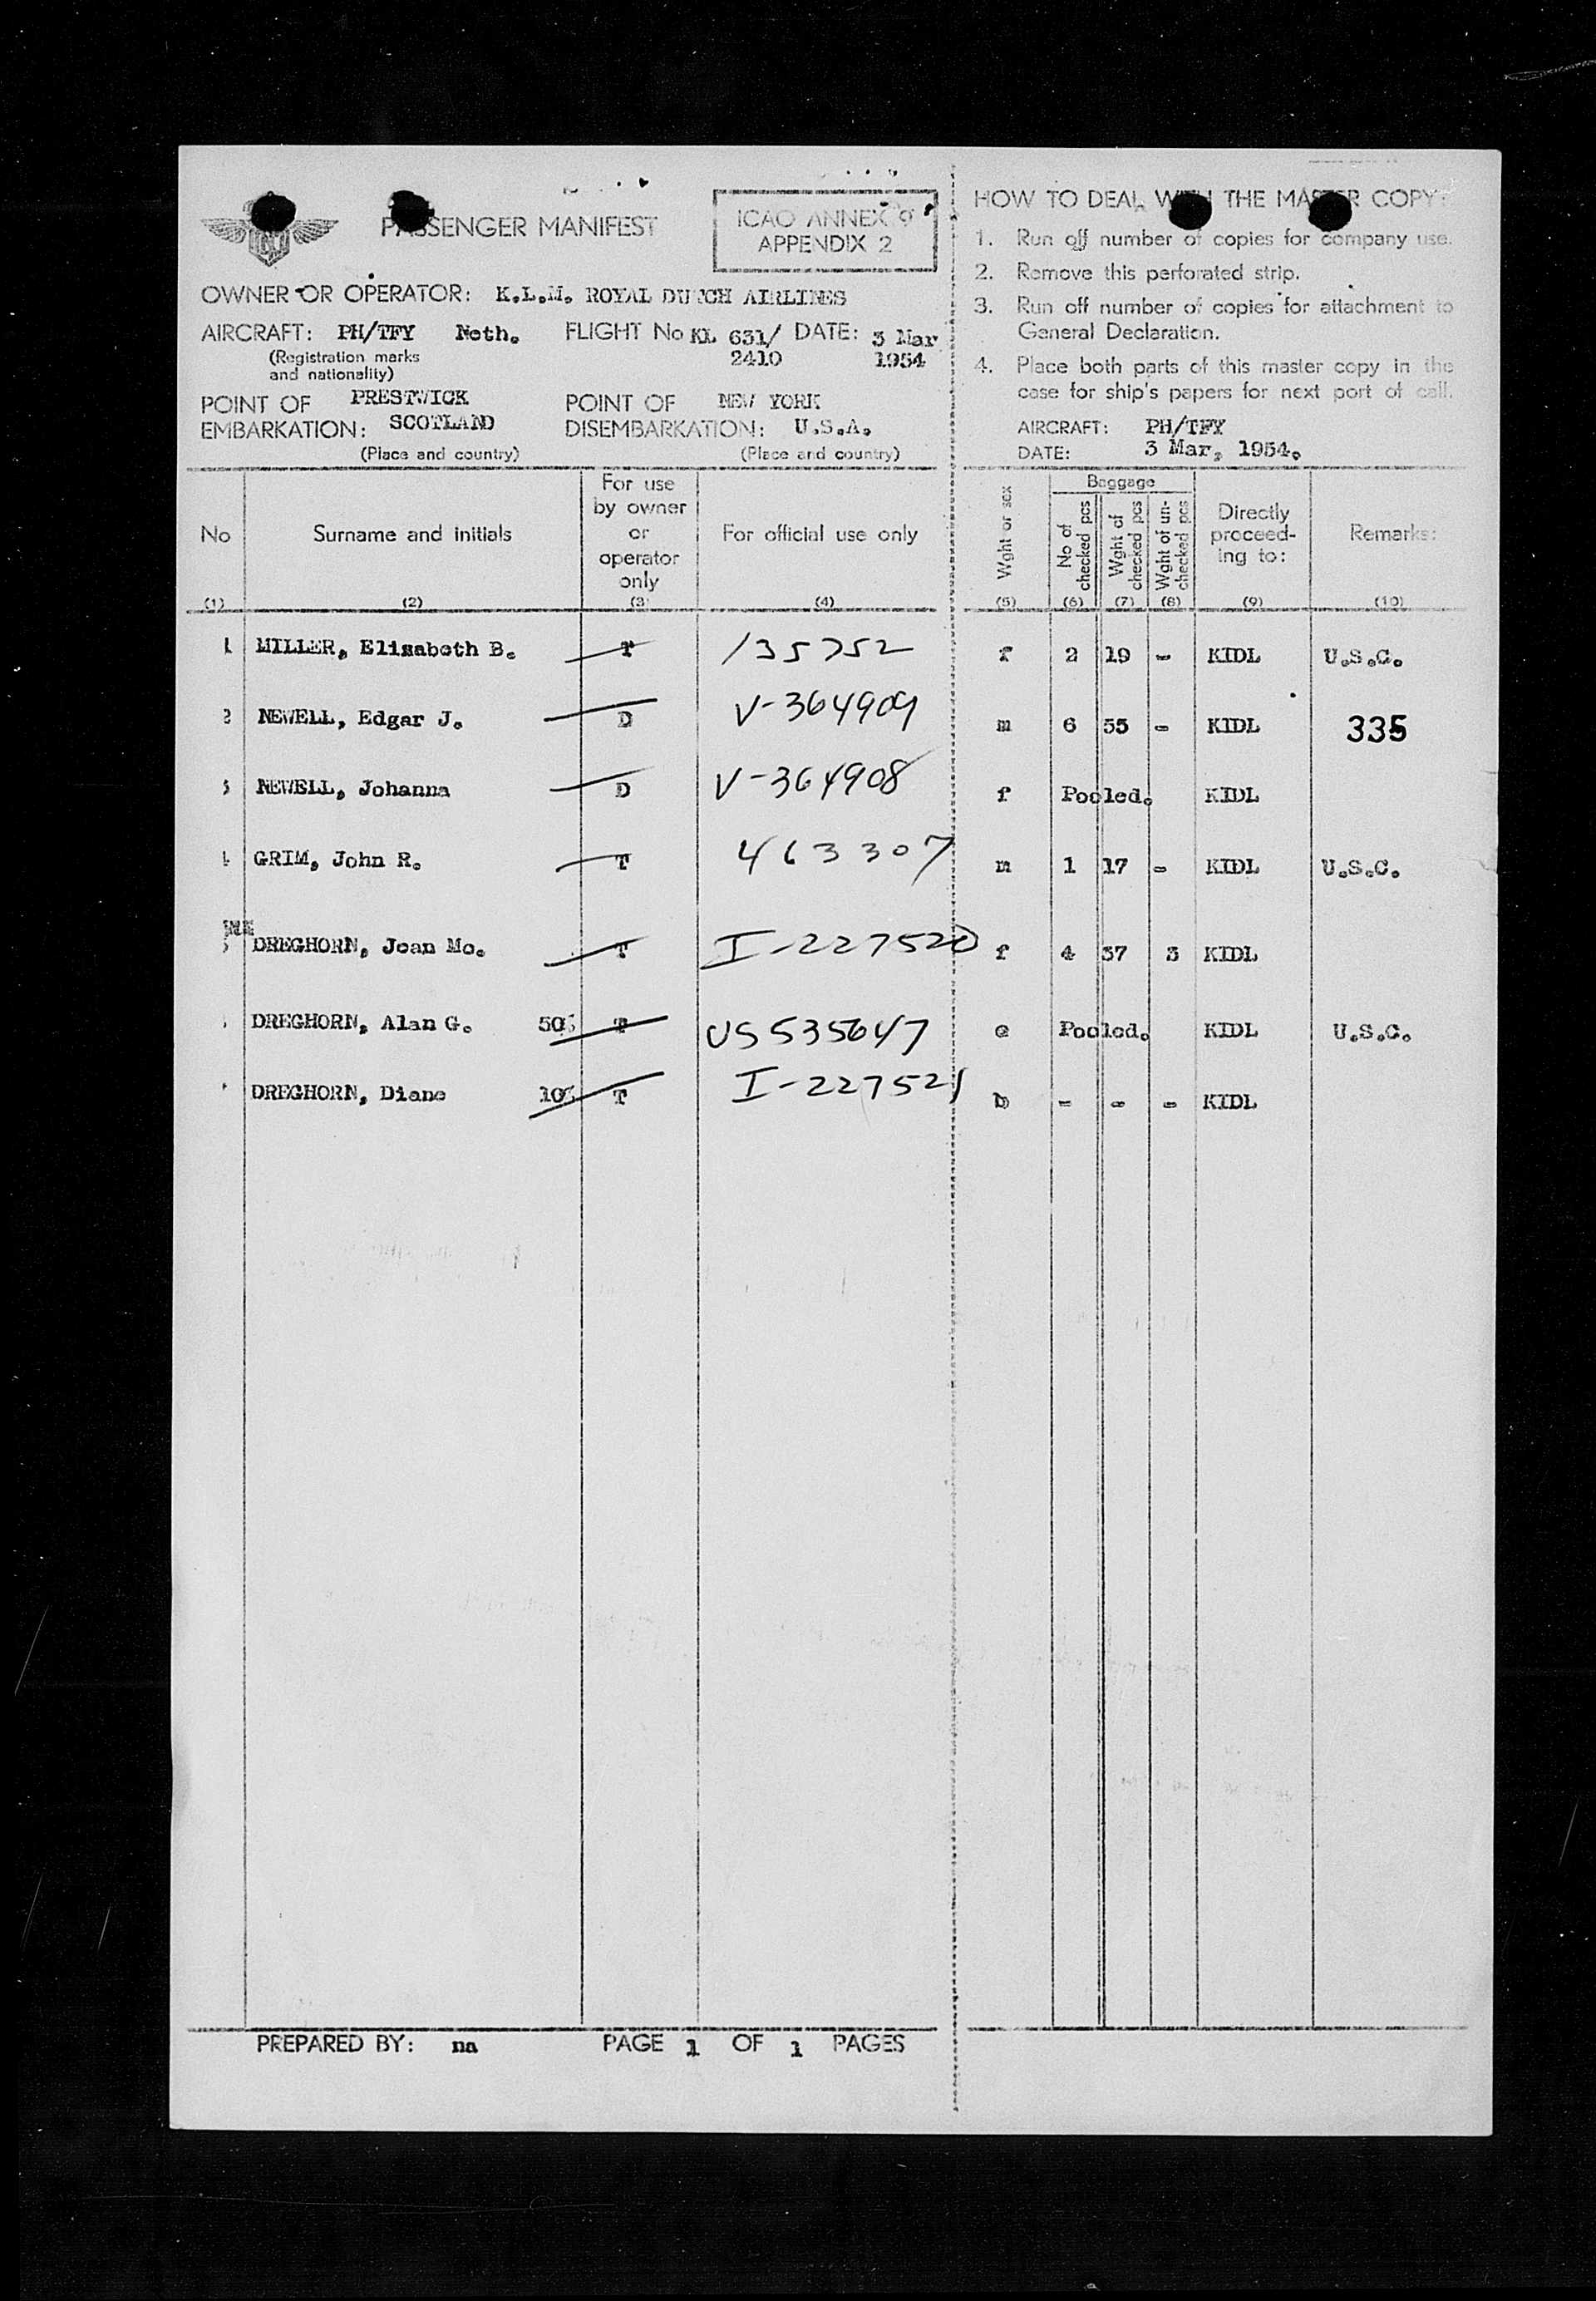 PASSENGER MANIFEST
ICAO ANNEX 9
APPENDIX 2
OWNER OR OPERATOR: K.L.M. ROYAL DUTCH AIRLINES
AIRCRAFT: PH/TFY Neth. FLIGHT No KL 631/ DATE: 3 Mar
(Registration marks 2410 1954
and nationality)
POINT OF PRESTWICK POINT OF NEW YORK
EMBARKATION: SCOTLAND DISEMBARKATION: U.S.A.
(Place and country) (Place and country)
HOW TO DEAL WITH THE MASTER COPY:
1. Run off number of copies for company use.
2. Remove this perforated strip.
3. Run off number of copies for attachment to
General Declaration.
4. Place both parts of this master copy in the
case for ship's papers for next port of call.
AIRCRAFT: PH/TFY
DATE: 3 Mar, 1954.
No
Surname and initials
For use
by owner
or
operator
only
For official use only
Wght or sex
Baggage
No of
checked pcs
Wght of
checked pcs
Wght of un-
checked pcs
Directly
proceed-
ing to:
Remarks:
(1) (2) (3) (4) (5) (6) (7) (8) (9) (10)
1 MILLER, Elisabeth B. T 135752 f 2 19 - KIDL U.S.C.
2 NEWELL, Edgar J. D V-364909 m 6 55 - KIDL 335
3 NEWELL, Johanna D V-364908 f Pooled. KIDL
4 GRIM, John R. T 463307 m 1 17 - KIDL U.S.C.
5 DREGHORN, Jean Mc. T I-227520 f 4 37 3 KIDL
DREGHORN, Alan G. 50% T US535647 c Pooled. KIDL U.S.C.
DREGHORN, Diane 10% T I-227521 b - - - KIDL
PREPARED BY: na PAGE 1 OF 1 PAGES